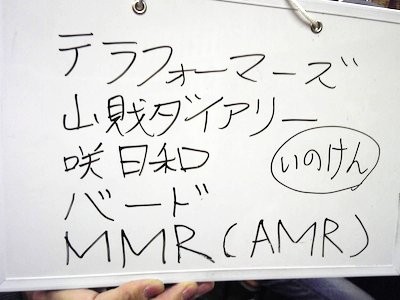 テラフォーマーズ
山賊ダイアリー
咲日和
いのけん
バード
MMR(AMR)